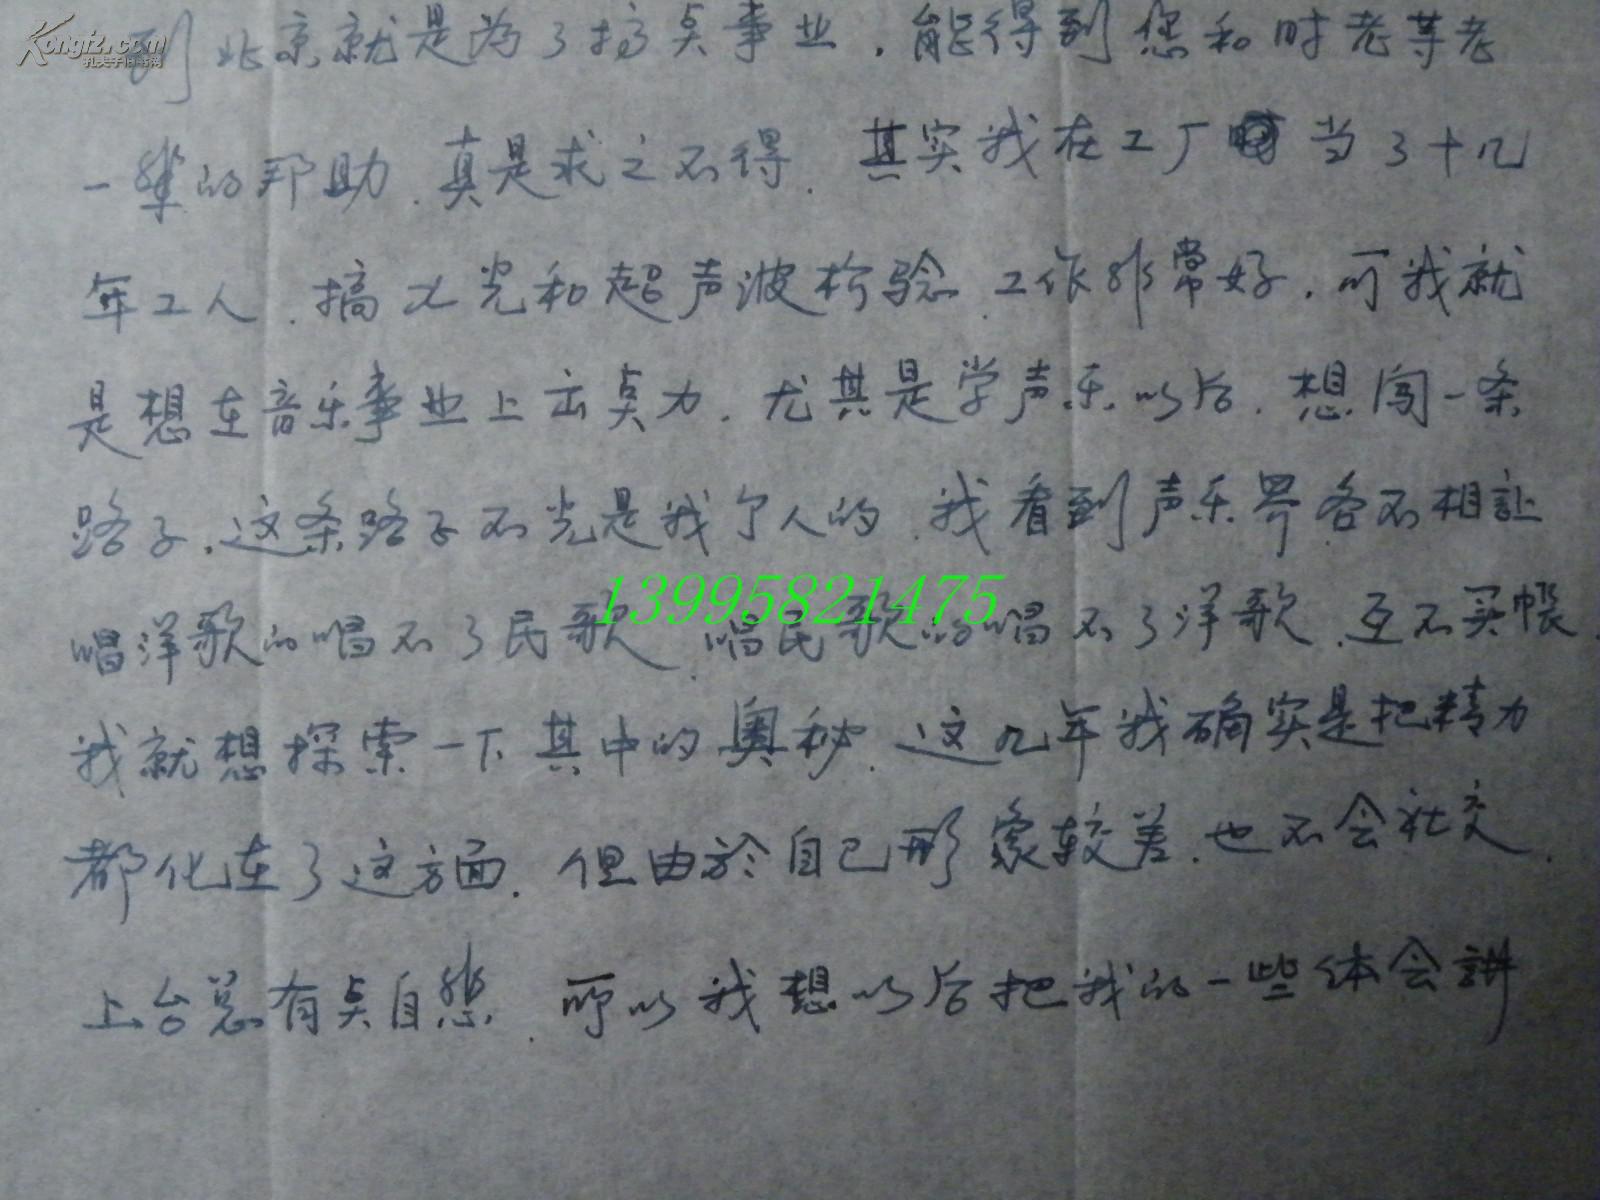 Kongfz.com
孔夫子旧书网
到北京就是为了搞点事业,能得到您和时老等老
一辈的帮助,真是求之不得.其实我在工厂当了十几
年工人,搞光和超声波检验,工作非常好,可我就
是想在音乐事业上出点力,尤其是学声乐以后,想闯一条
路子,这条路子不光是我个人的,我看到声乐界各不相让
13995821475
唱洋歌的唱不了民歌,唱民歌的唱不了洋歌,互不买帐,
我就想探索一下其中的奥秘,这几年我确实是把精力
都化在了这方面,但由於自己形象较差,也不会社交,
上台总有点自,所以我想以后把我的一些体会讲